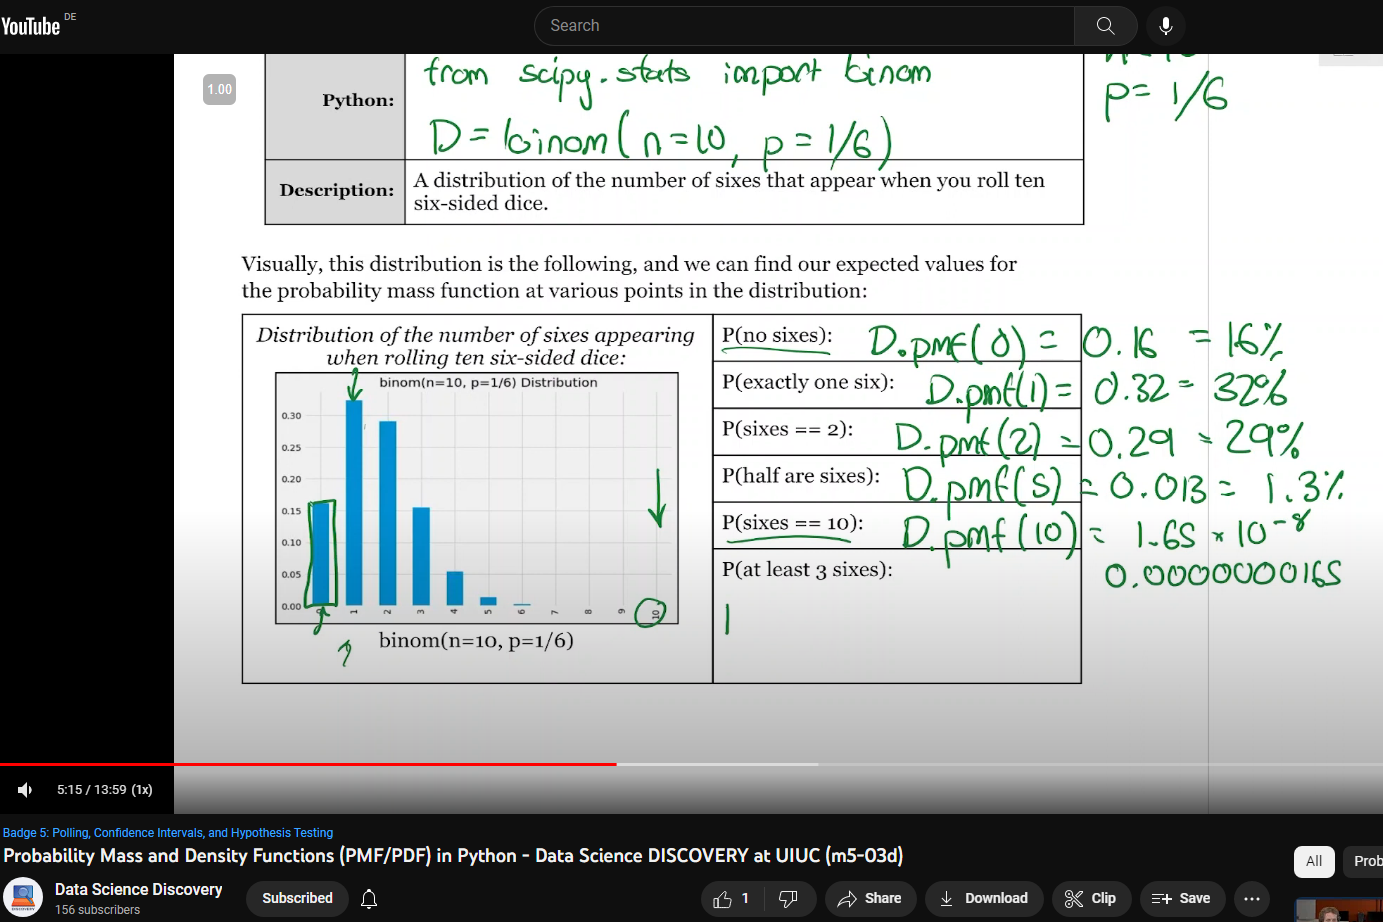 YouTube DE
Search
1.00
Python:
from scipy.stats import binom
D = binom(n=10, p=1/6)
p = 1/6
Description:
A distribution of the number of sixes that appear when you roll ten
six-sided dice.
Visually, this distribution is the following, and we can find our expected values for
the probability mass function at various points in the distribution:
Distribution of the number of sixes appearing
when rolling ten six-sided dice:
binom(n=10, p=1/6) Distribution
0.30
0.25
0.20
0.15
0.10
0.05
0.00
0 1 2 3 4 5 6 7 8 9 10
binom(n=10, p=1/6)
P(no sixes): D.pmf(0) = 0.16 = 16%
P(exactly one six): D.pmf(1) = 0.32 = 32%
P(sixes == 2): D.pmf(2) = 0.29 = 29%
P(half are sixes): D.pmf(5) = 0.013 = 1.3%
P(sixes == 10): D.pmf(10) = 1.65 * 10^-8
0.0000000165
P(at least 3 sixes):
5:15 / 13:59 (1x)
Badge 5: Polling, Confidence Intervals, and Hypothesis Testing
Probability Mass and Density Functions (PMF/PDF) in Python - Data Science DISCOVERY at UIUC (m5-03d)
All
Prob
Data Science Discovery
156 subscribers
Subscribed
1
Share
Download
Clip
Save